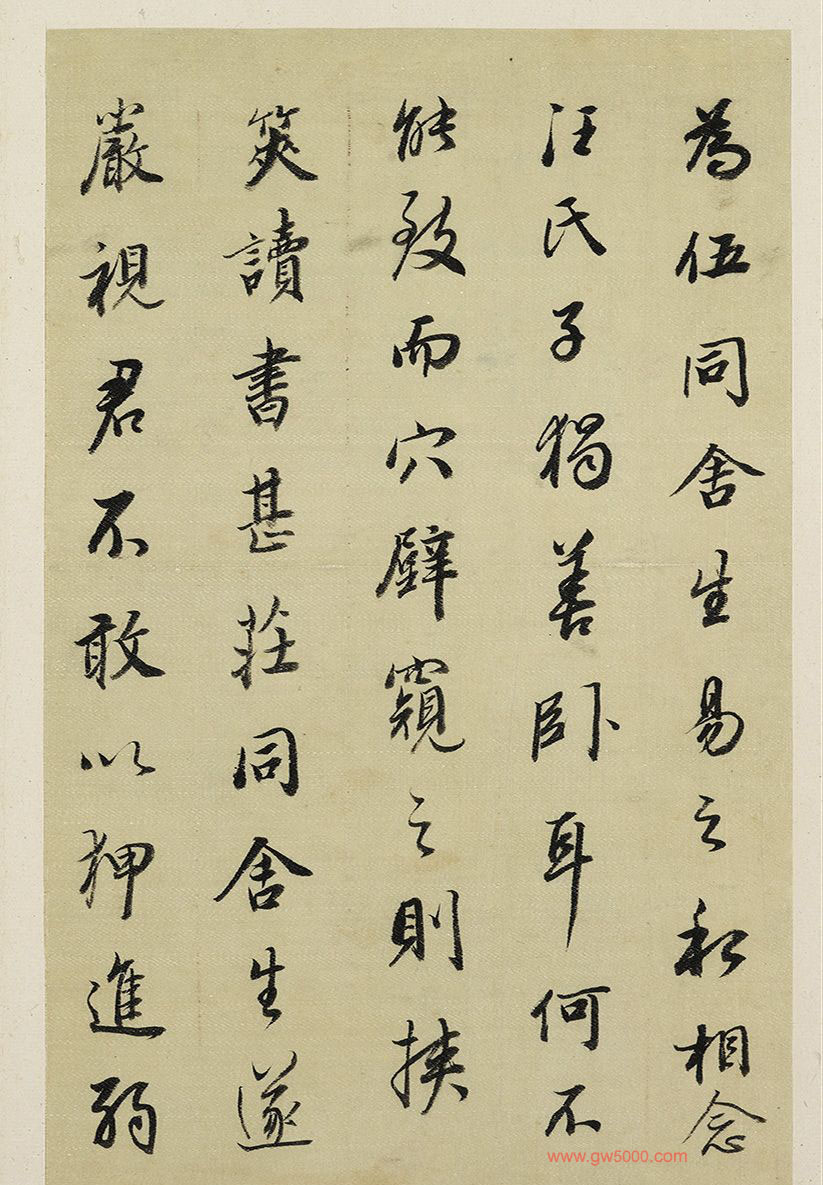 為伍同舍生易之私相念
汪氏子獨善卧耳何不
能致而穴壁窺之則挾
筴讀書甚莊同舍生遂
嚴視君不敢以狎進弱
www.gw5000.com